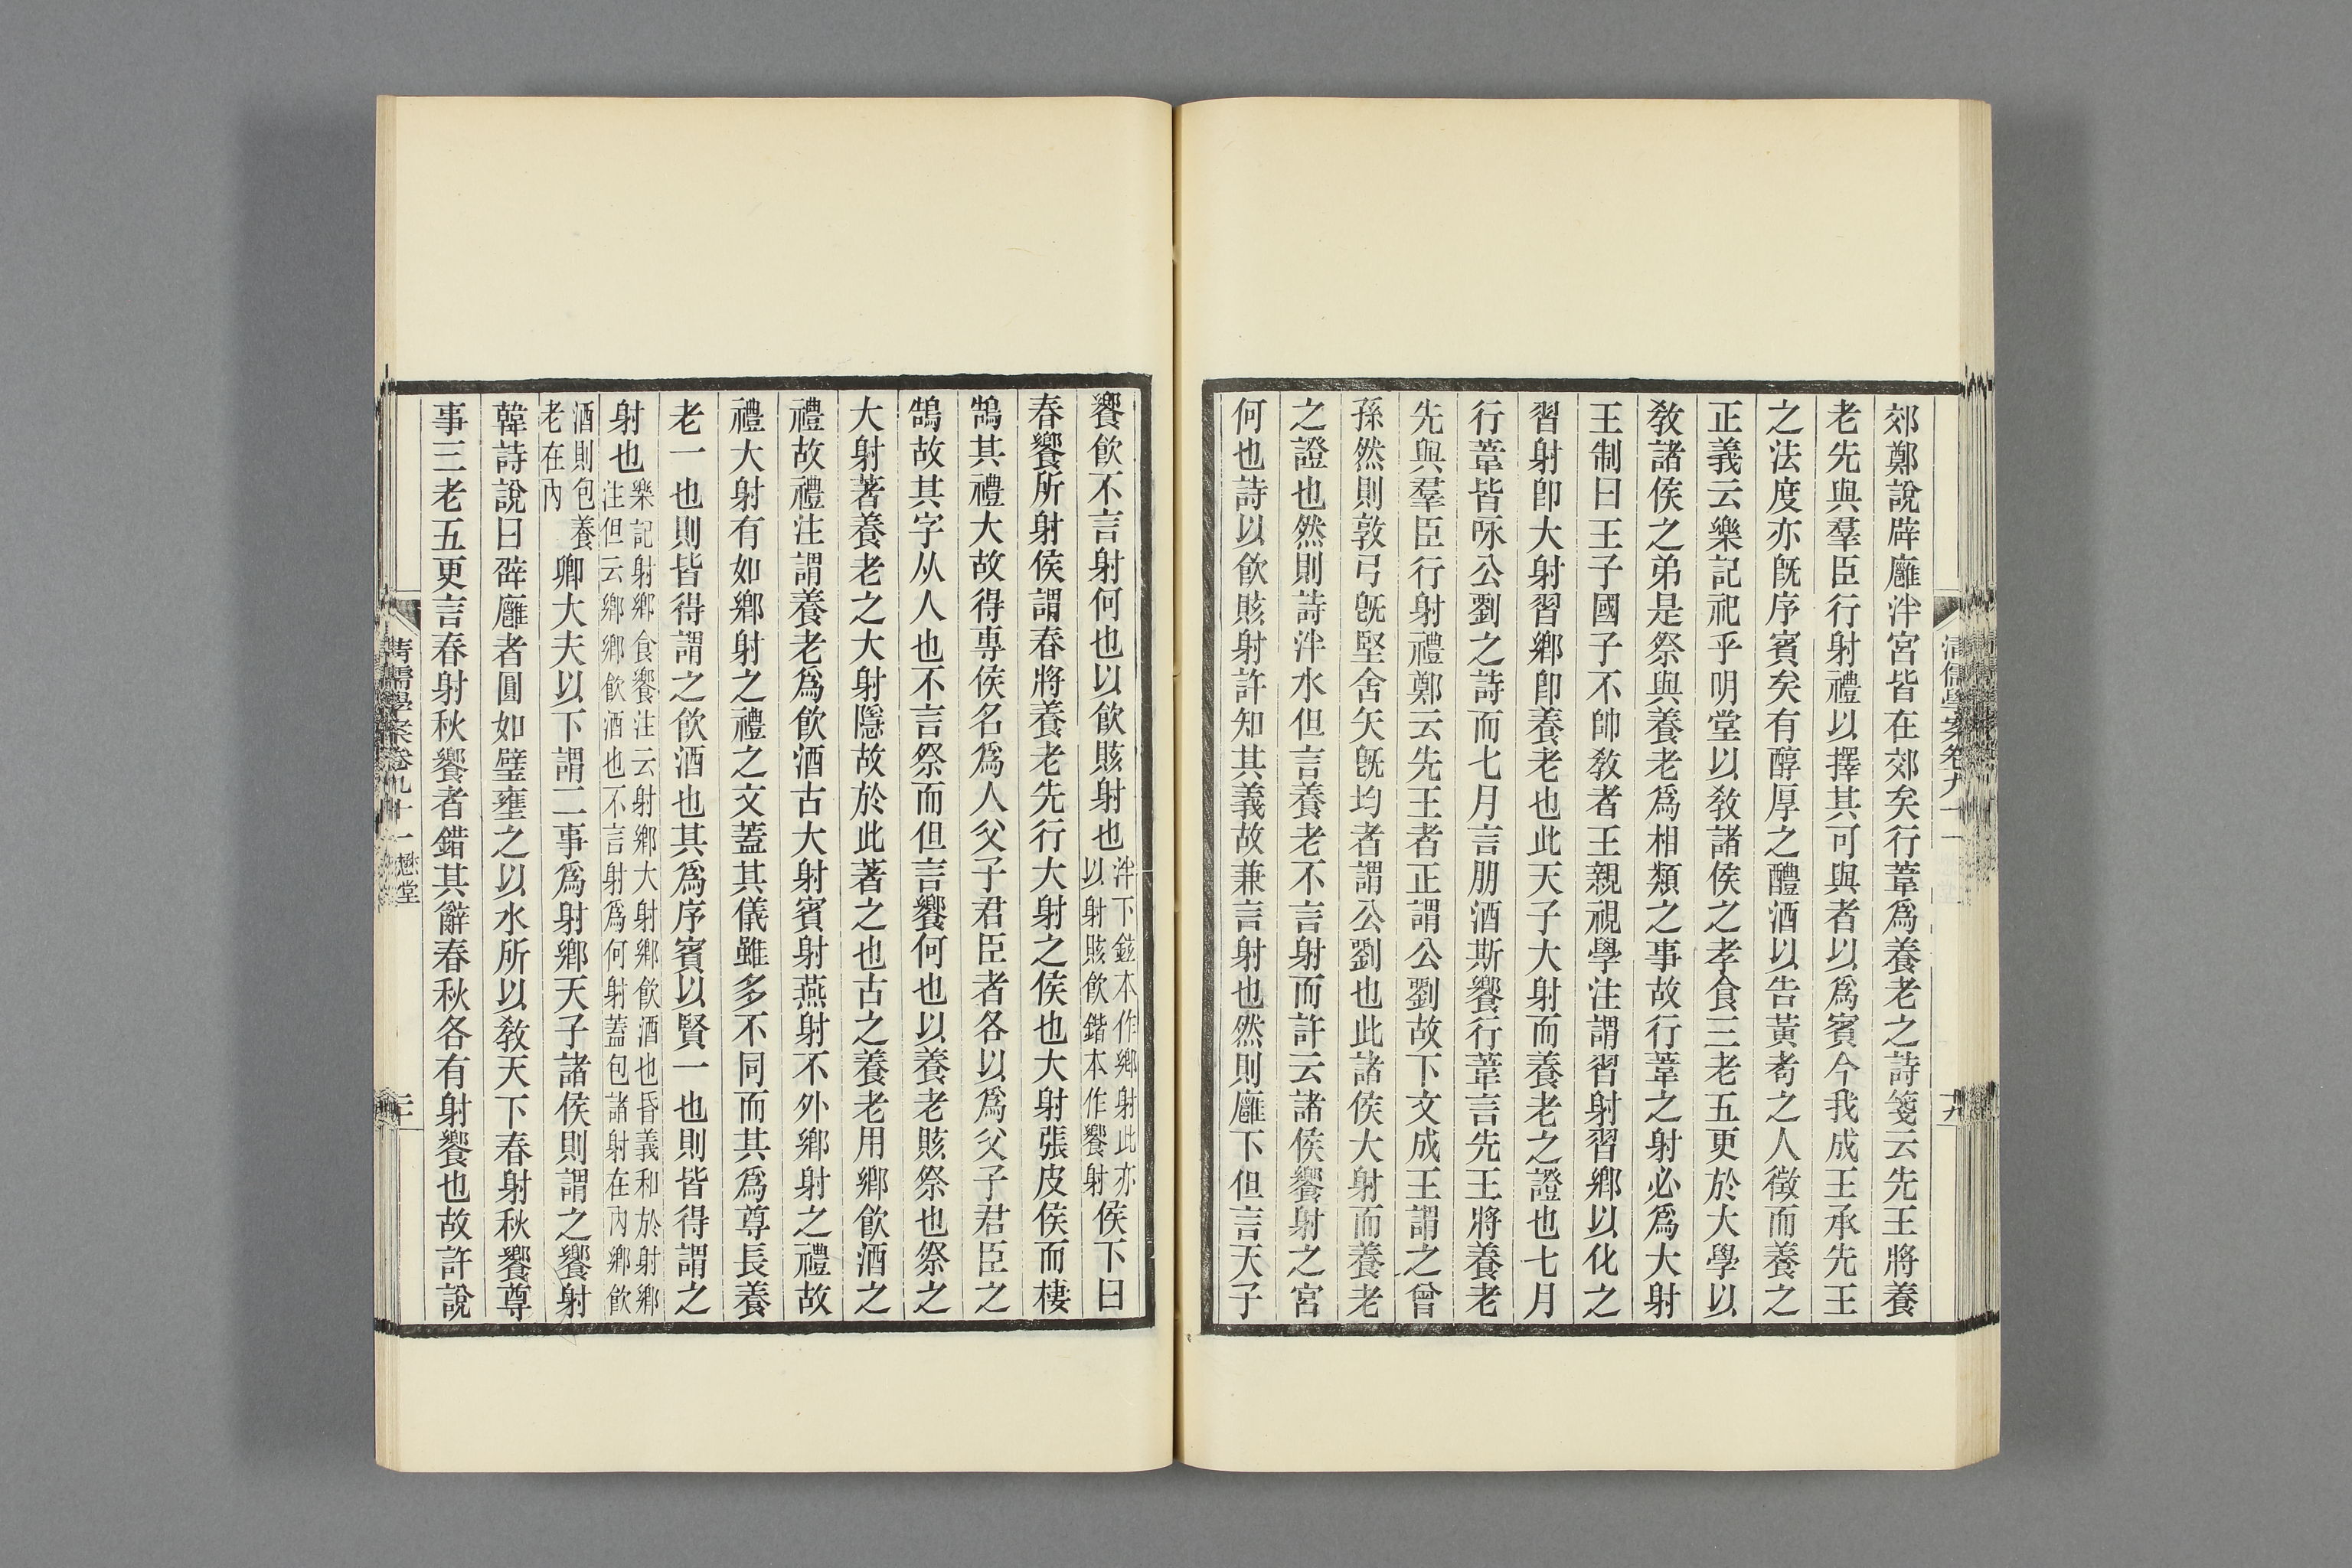 郊鄭說辟廱泮宮皆在郊矣行葦爲養老之詩箋云先王將養
老先與羣臣行射禮以擇其可與者以爲賓今我成王承先王
之法度亦旣序賓矣有醇厚之醴酒以告黃耇之人徵而養之
正義云樂記祀乎明堂以敎諸侯之孝食三老五更於大學以
敎諸侯之弟是祭與養老爲相類之事故行葦之射必爲大射
王制曰王子國子不帥敎者王親視學注謂習射習鄕以化之
習射卽大射習鄕卽養老也此天子大射而養老之證也七月
行葦皆咏公劉之詩而七月言朋酒斯饗行葦言先王將養老
先與羣臣行射禮鄭云先王者正謂公劉故下文成王謂之曾
孫然則敦弓旣堅舍矢旣均者謂公劉也此諸侯大射而養老
之證也然則詩泮水但言養老不言射而許云諸侯饗射之宮
何也詩以飮賅射許知其義故兼言射也然則廱下但言天子
饗飮不言射何也以飮賅射也泮下鉉本作鄕射此亦以射賅飮鍇本作饗射侯下曰
春饗所射侯謂春將養老先行大射之侯也大射張皮侯而棲
鵠其禮大故得專侯名爲人父子君臣者各以爲父子君臣之
鵠故其字从人也不言祭而但言饗何也以養老賅祭也祭之
大射著養老之大射隱故於此著之也古之養老用鄕飮酒之
禮故禮注謂養老爲飮酒古大射賓射燕射不外鄕射之禮故
禮大射有如鄕射之禮之文蓋其儀雖多不同而其爲尊長養
老一也則皆得謂之飮酒也其爲序賓以賢一也則皆得謂之
射也樂記射鄕食饗注云射鄕大射鄕飮酒也昏義和於射鄕注但云鄕鄕飮酒也不言射爲何射蓋包諸射在內鄕飮
酒則包養老在內卿大夫以下謂二事爲射鄕天子諸侯則謂之饗射
韓詩說曰辟廱者圓如璧壅之以水所以敎天下春射秋饗尊
事三老五更言春射秋饗者錯其辭春秋各有射饗也故許說
清儒學案卷九十一
十九
清儒學案卷九十一 懋堂
二